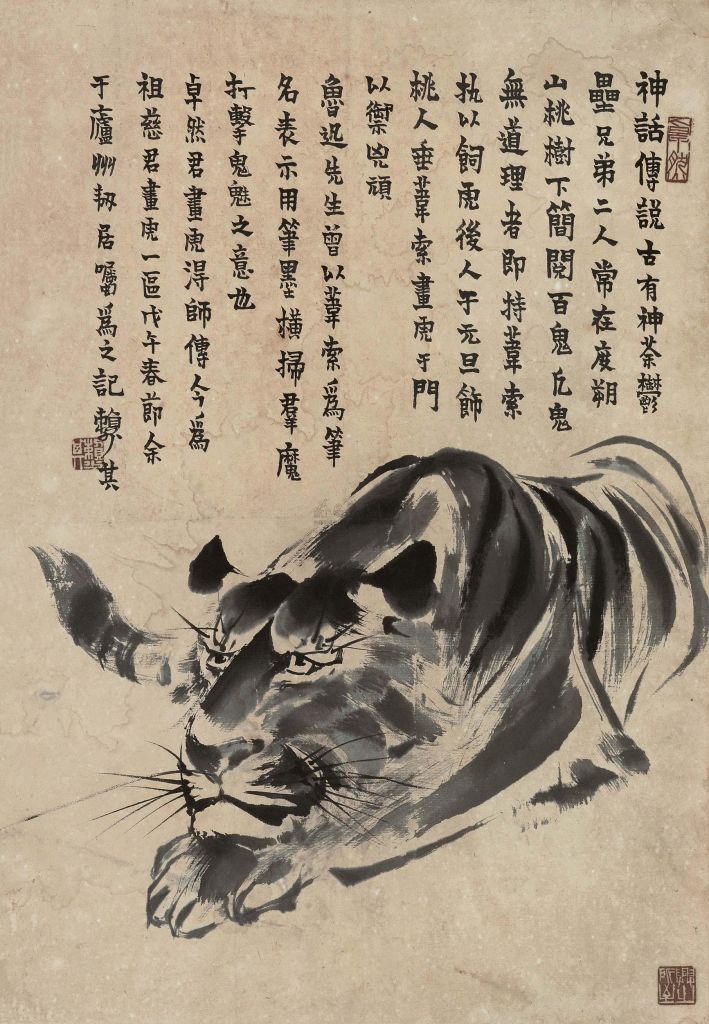 神話傳說古有神荼鬱
壘兄弟二人常在度朔
山桃樹下簡閱百鬼凡鬼
無道理者即持葦索
執以飼虎後人于元旦飾
桃人垂葦索畫虎于門
以禦兇頑
魯迅先生曾以葦索為筆
名表示用筆墨橫掃羣魔
打擊鬼魅之意也
卓然君畫虎得師傳今為
祖慈君畫虎一區戊午春節余
于廬州韧居囑為之記賴少其